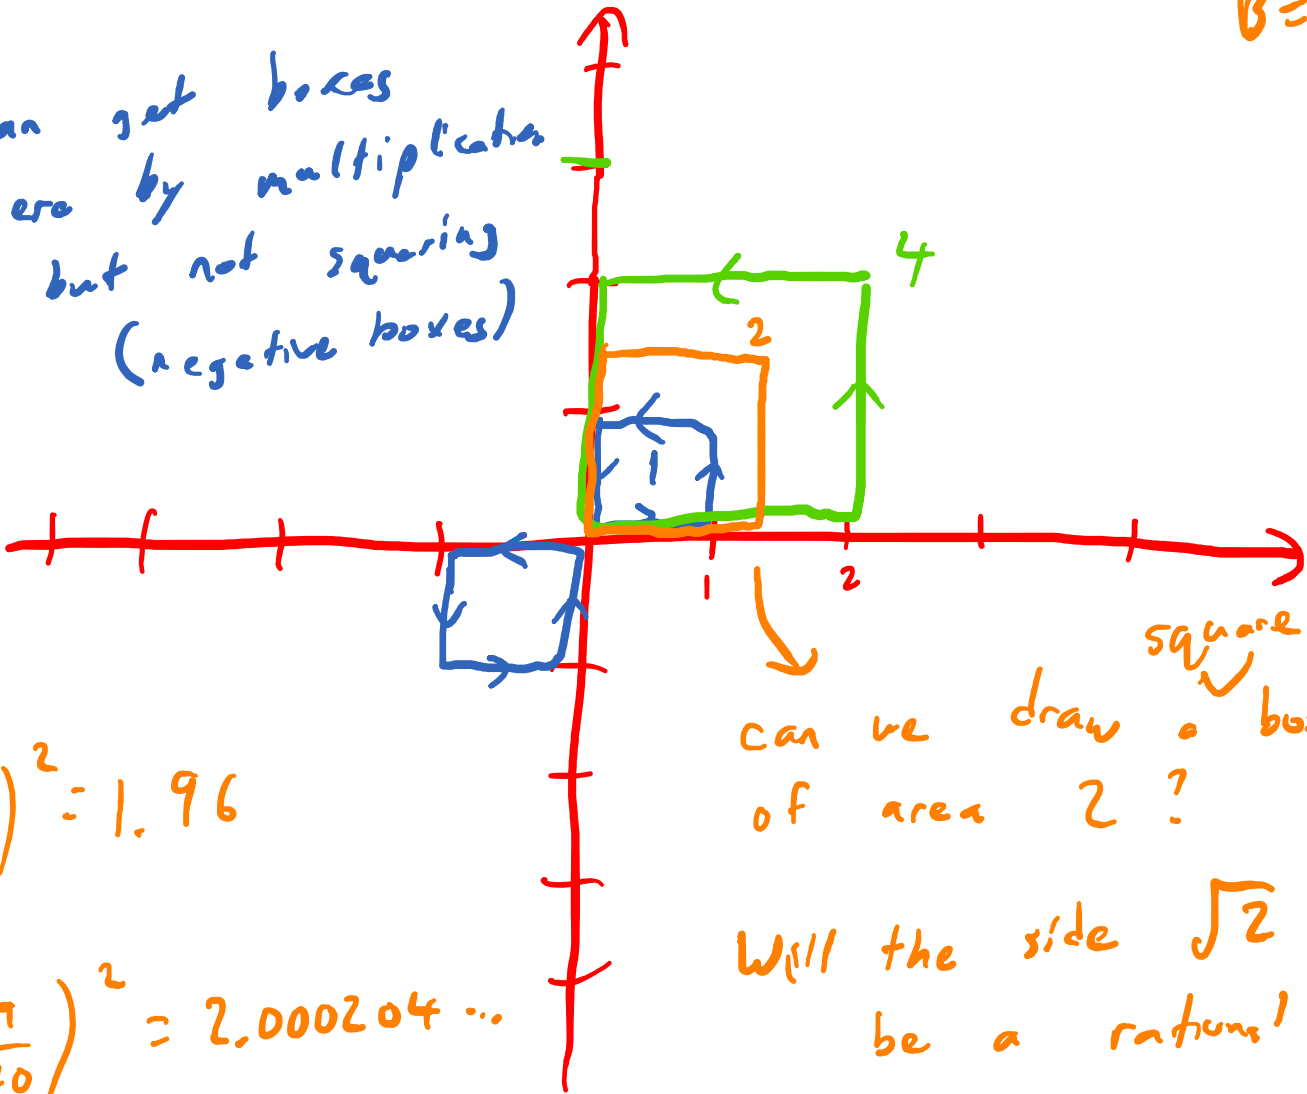 B =
an get boxes
ere by multiplication
but not squaring
(negative boxes)
4
2
1
1 2
square
can we draw a box
of area 2 ?
)² = 1.96
Will the side √2
be a rational
)² = 2.000204 ...